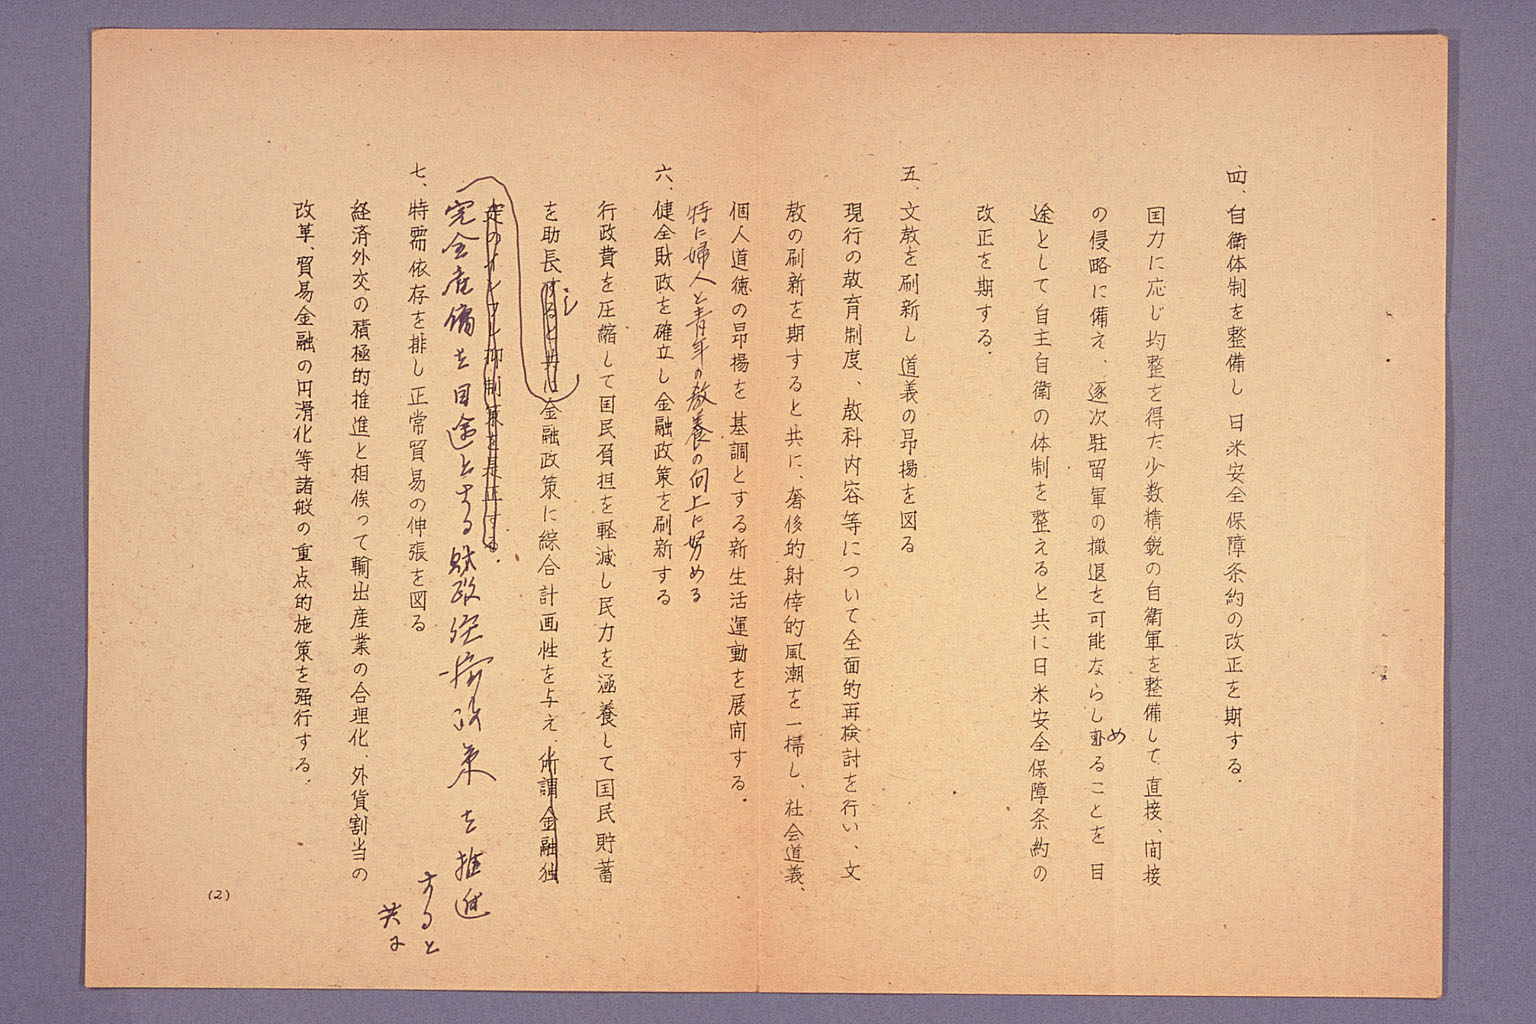 四、自衛体制を整備し日米安全保障条約の改正を期する.
国力に応じ均整を得た少数精鋭の自衛軍を整備して、直接、間接
の侵略に備え、逐次駐留軍の撤退を可能ならしめることを目
途として自主自衛の体制を整えると共に日米安全保障条約の
改正を期する.
五、文教を刷新し道義の昂揚を図る
現行の教育制度、教科内容等について全面的再検討を行い、文
教の刷新を期すると共に、奢侈的射倖的風潮を一掃し、社会道義、
個人道徳の昂揚を基調とする新生活運動を展開する.
特に婦人と青年の教養の向上に努める
六、健全財政を確立し金融政策を刷新する
行政費を圧縮して国民負担を軽減し民力を涵養して国民貯蓄
を助長すると共に金融政策に綜合計画性を与え.所謂金融独
し
走のインフレ抑制策を是正する.
完全雇傭を目途とする財政経済政策を推進
すると
共に
七、特需依存を排し正常貿易の伸張を図る
経済外交の積極的推進と相俟って輸出産業の合理化、外貨割当の
改革、貿易金融の円滑化等諸般の重点的施策を強行する.
(2)